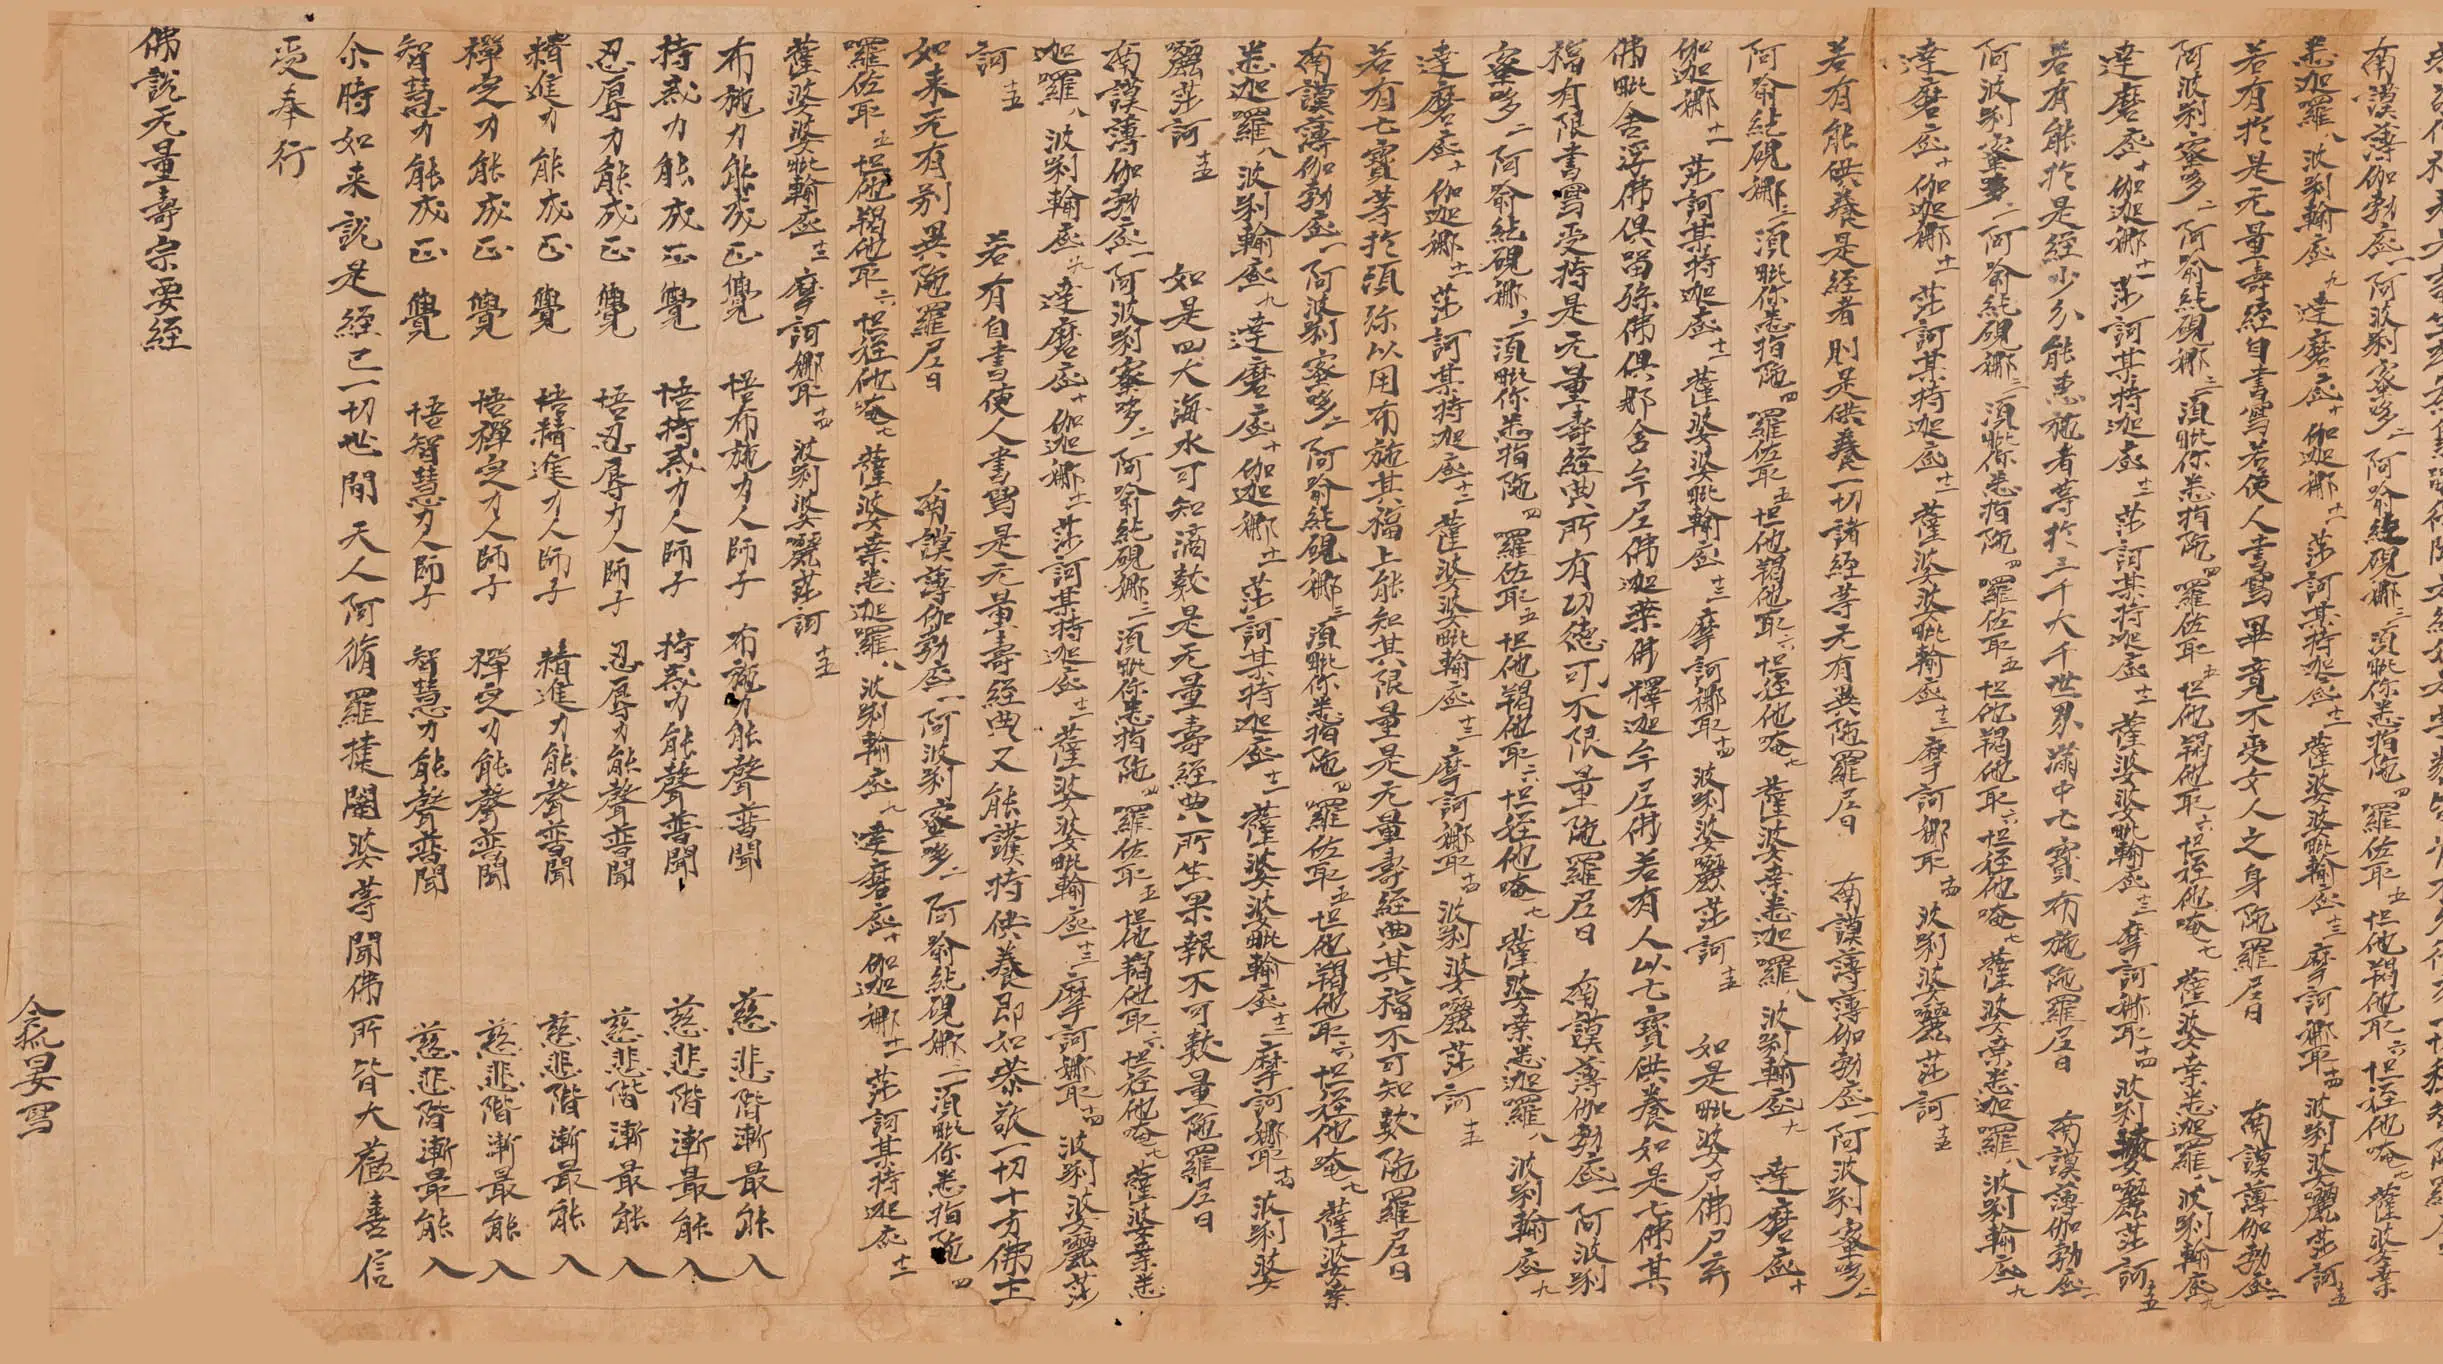 南謨薄伽勃底一阿波唎蜜哆二阿喻紇硯娜三須毗你悉指陁四羅佐耶五怛他羯他耶六怛姪他唵七薩婆桒
悉迦羅八波唎輸底九達磨底十伽迦娜十一莎訶某持迦底十二薩婆婆毗輸底十三摩訶娜耶十四波唎婆囇莎訶十五
若有於是无量壽經自書寫若使人書寫畢竟不受女人之身陁羅尼曰 南謨薄伽勃底一
阿波唎蜜哆二阿喻紇硯娜三須毗你悉指陁四羅佐耶五怛他羯他耶六怛姪他唵七薩婆桒悉迦羅八波唎輸底九
達磨底十伽迦娜十一莎訶某持迦底十二薩婆婆毗輸底十三摩訶娜耶十四波唎婆囇莎訶十五
若有能於是經少分能惠施者等於三千大千世界滿中七寶布施陁羅尼曰 南謨薄伽勃底一
阿波唎蜜哆二阿喻紇硯娜三須毗你悉指陁四羅佐耶五怛他羯他耶六怛姪他唵七薩婆桒悉迦羅八波唎輸底九
達磨底十伽迦娜十一莎訶某持迦底十二薩婆婆毗輸底十三摩訶娜耶十四波唎婆囇莎訶十五
若有能供養是經者則是供養一切諸經等无有異陁羅尼曰 南謨薄伽勃底一阿波唎蜜哆二
阿喻紇硯娜三須毗你悉指陁四羅佐耶五怛他羯他耶六怛姪他唵七薩婆桒悉迦羅八波唎輸底九達磨底十
伽迦娜十一莎訶某持迦底十二薩婆婆毗輸底十三摩訶娜耶十四波唎婆囇莎訶十五 如是毗婆尸佛尸弃
佛毗舍浮佛俱留孫佛俱那含牟尼佛迦葉佛釋迦牟尼佛若有人以七寶供養如是七佛其
福有限書寫受持是无量壽經典所有功德可不限量陁羅尼曰 南謨薄伽勃底一阿波唎
蜜哆二阿喻紇硯娜三須毗你悉指陁四羅佐耶五怛他羯他耶六怛姪他唵七薩婆桒悉迦羅八波唎輸底九
達磨底十伽迦娜十一莎訶某持迦底十二薩婆婆毗輸底十三摩訶娜耶十四波唎婆囇莎訶十五
若有七寶等於須弥以用布施其福上能知其限量是无量壽經典其福不可知數陁羅尼曰
南謨薄伽勃底一阿波唎蜜哆二阿喻紇硯娜三須毗你悉指陁四羅佐耶五怛他羯他耶六怛姪他唵七薩婆桒
悉迦羅八波唎輸底九達磨底十伽迦娜十一莎訶某持迦底十二薩婆婆毗輸底十三摩訶娜耶十四波唎婆
囇莎訶十五 如是四大海水可知滴數是无量壽經典所生果報不可數量陁羅尼曰
南謨薄伽勃底一阿波唎蜜哆二阿喻紇硯娜三須毗你悉指陁四羅佐耶五怛他羯他耶六怛姪他唵七薩婆桒悉
迦羅八波唎輸底九達磨底十伽迦娜十一莎訶某持迦底十二薩婆婆毗輸底十三摩訶娜耶十四波唎婆囇莎
訶十五 若有自書使人書寫是无量壽經典又能護持供養即如恭敬一切十方佛土
如来无有别異陁羅尼曰 南謨薄伽勃底一阿波唎蜜哆二阿喻紇硯娜三須毗你悉指陁四
羅佐耶五怛他羯他耶六怛姪他唵七薩婆桒悉迦羅八波唎輸底九達磨底十伽迦娜十一莎訶某持迦底十二
薩婆婆毗輸底十三摩訶娜耶十四波唎婆囇莎訶十五
布施力能成正覺 悟布施力人師子 布施力能聲普聞 慈悲階漸最能入
持戒力能成正覺 悟持戒力人師子 持戒力能聲普聞 慈悲階漸最能入
忍辱力能成正覺 悟忍辱力人師子 忍辱力能聲普聞 慈悲階漸最能入
精進力能成正覺 悟精進力人師子 精進力能聲普聞 慈悲階漸最能入
禪定力能成正覺 悟禪定力人師子 禪定力能聲普聞 慈悲階漸最能入
智慧力能成正覺 悟智慧力人師子 智慧力能聲普聞 慈悲階漸最能入
尒時如来說是經已一切世間天人阿脩羅揵闥婆等聞佛所皆大歡喜信
受奉行
佛說无量壽宗要經
令狐晏寫